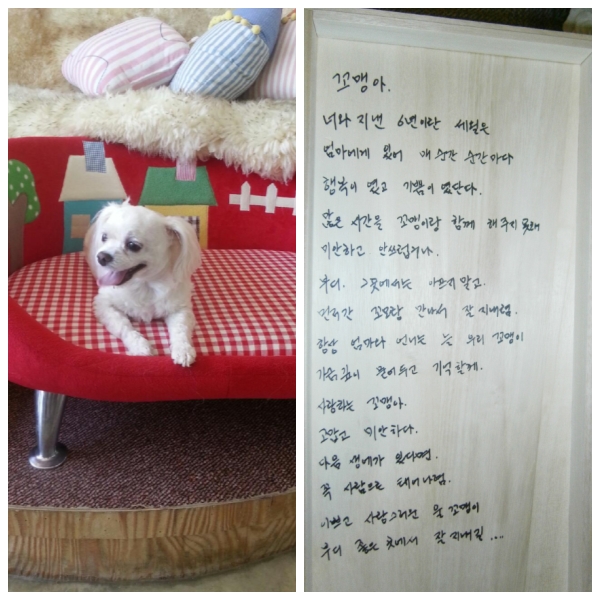 꼬맹아.
너와 지낸 6년이란 세월은
엄마에게 있어 매 순간 순간마다
행복이 였고 기쁨이 였단다.
많은 시간을 꼬맹이랑 함께 해주지 못해
미안하고 안쓰럽구나.
부디. 그곳에서는 아프지 말고.
먼저간 꼬모랑 만나서 잘 지내렴.
항상 엄마랑 언니는 늘 우리 꼬맹이
가슴 깊이 묻어두고 기억할께.
사랑하는 꼬맹아.
고맙고 미안하다.
다음 생에가 있다면.
꼭 사람으로 태어나렴.
이쁘고 사랑스러운 울 꼬맹이
부디 좋은 곳에서 잘 지내길....